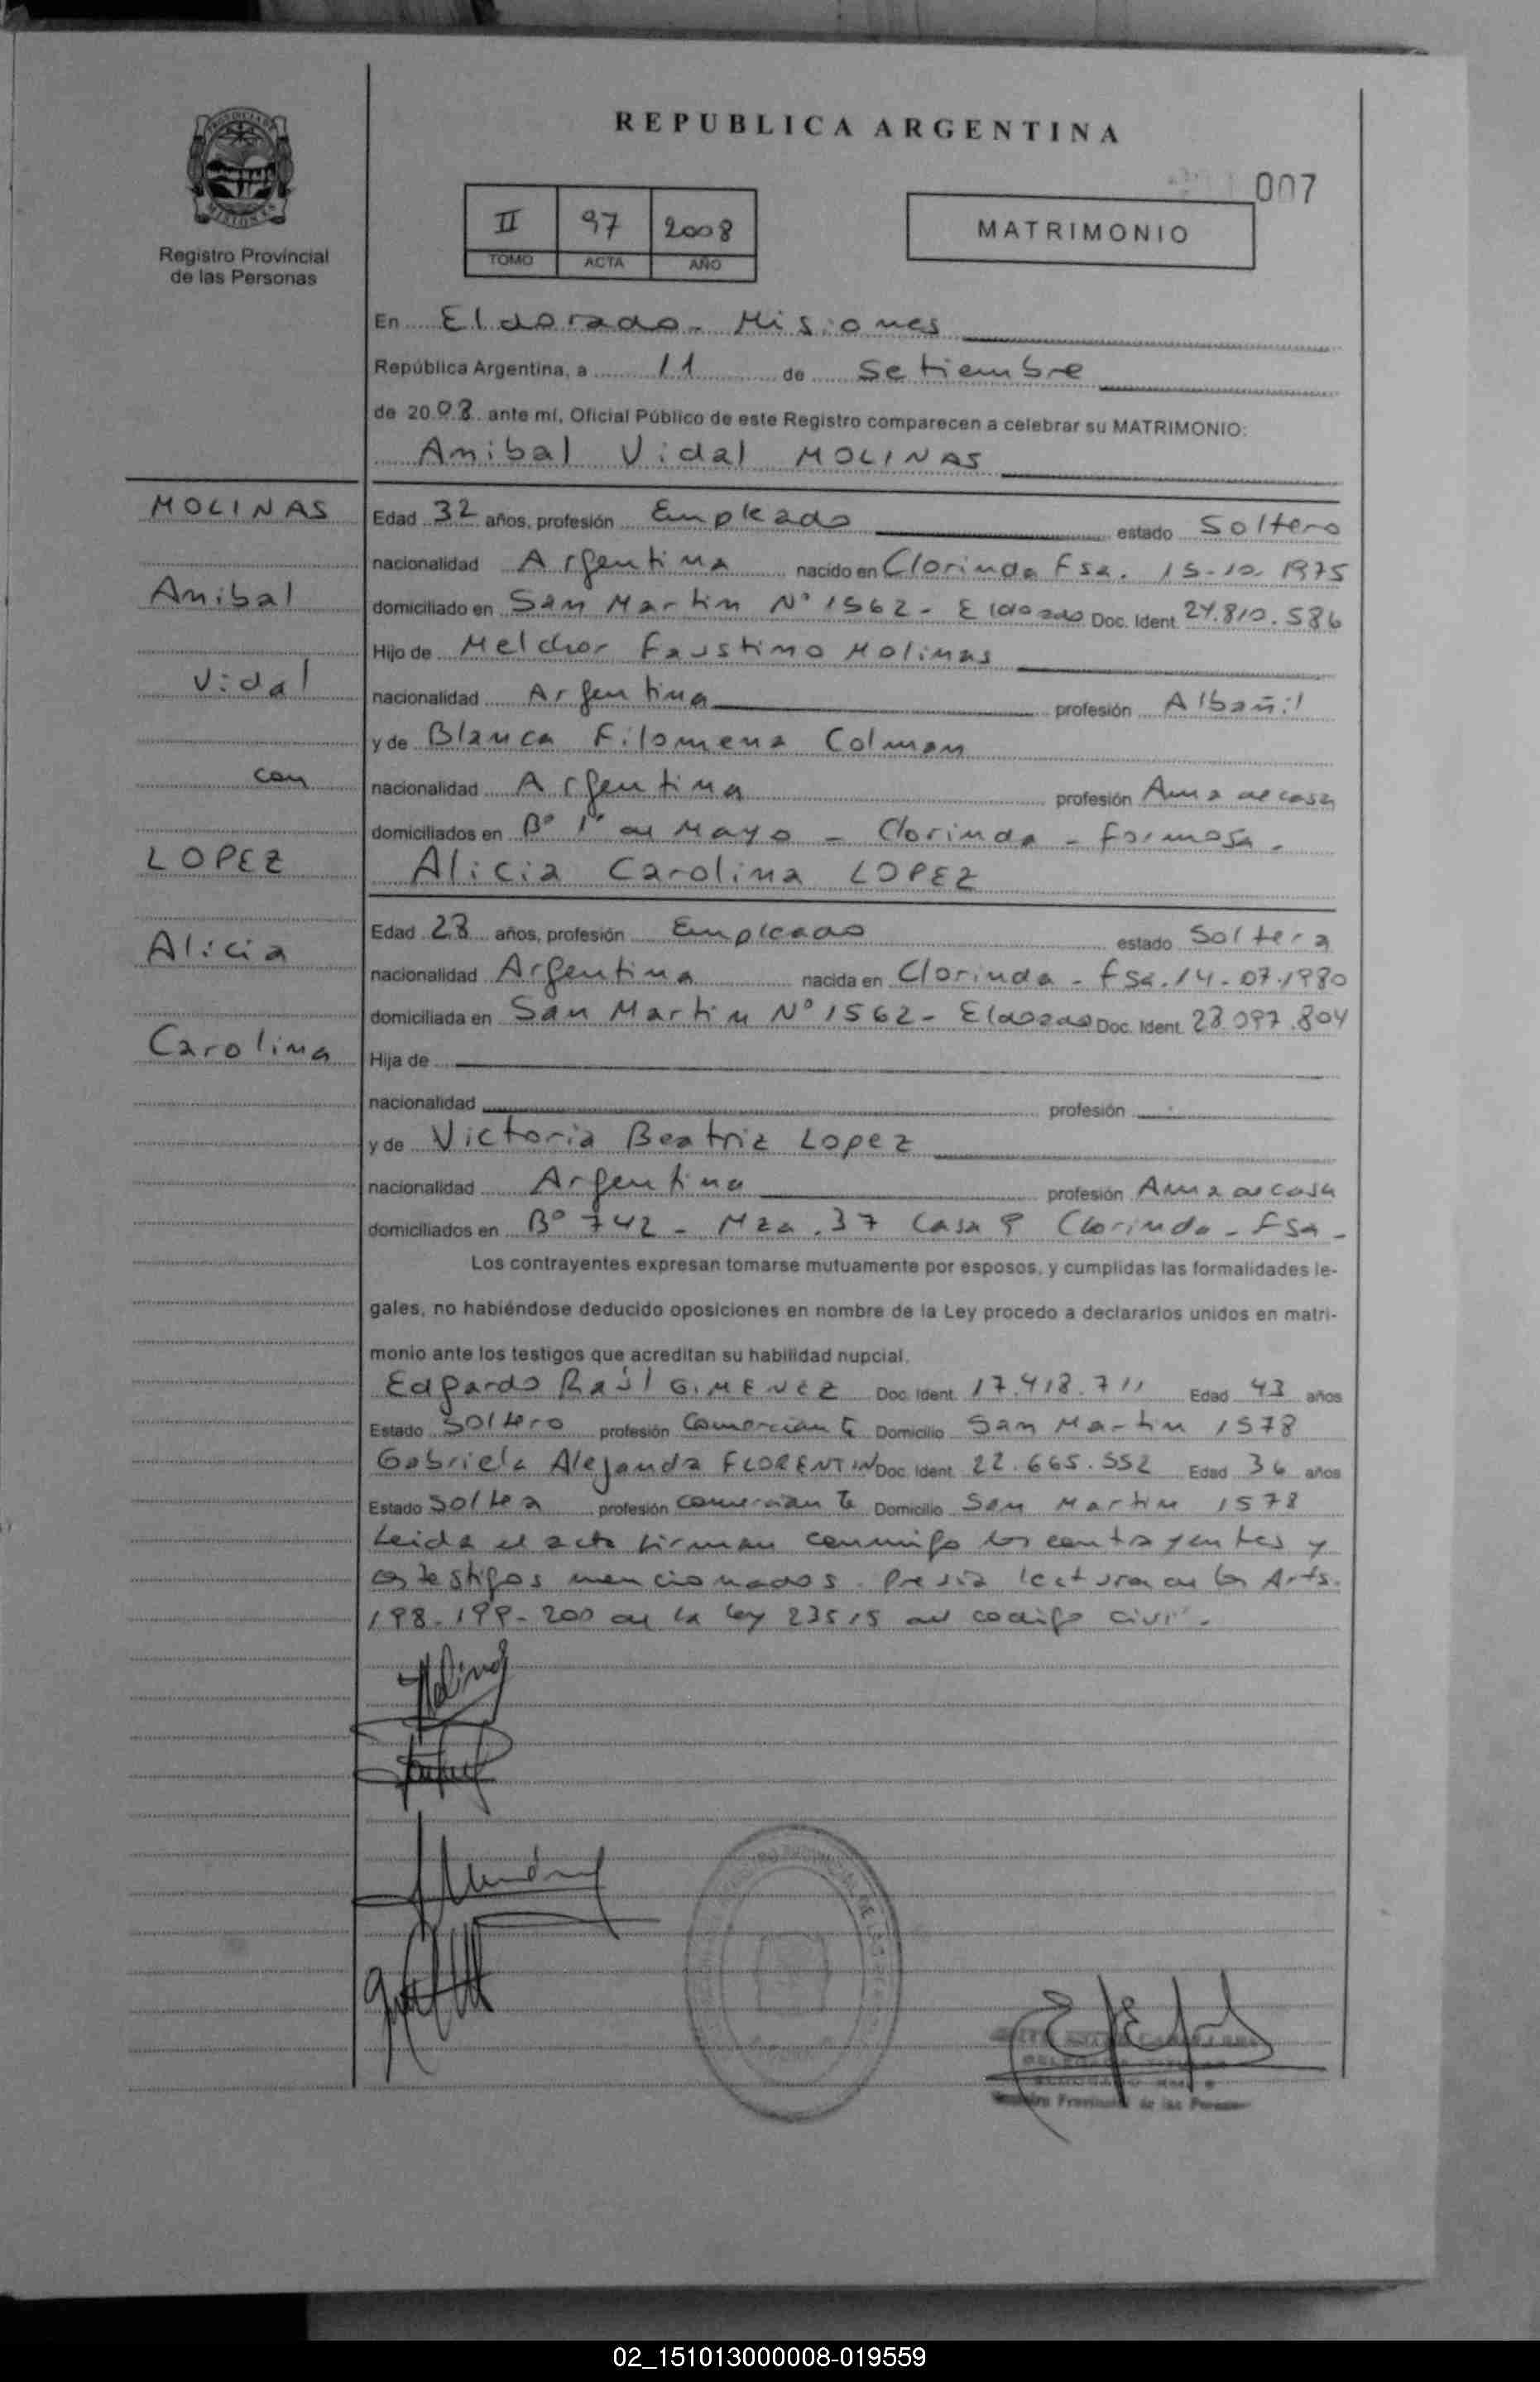 REPUBLICA ARGENTINA
007
II 97 2008
TOMO ACTA AÑO
MATRIMONIO
PROVINCIA DE MISIONES
Registro Provincial
de las Personas
En Eldorado - Misiones
República Argentina, a 11 de Setiembre
de 2008 ante mí, Oficial Público de este Registro comparecen a celebrar su MATRIMONIO:
Anibal Vidal MOLINAS
MOLINAS
Anibal
Vidal
con
LOPEZ
Alicia
Carolina
Edad 32 años, profesión Empleado estado Soltero
nacionalidad Argentina nacido en Clorinda Fsa. 15-10-1975
domiciliado en San Martin N° 1562 - Eldorado Doc. Ident. 24.810.586
Hijo de Melchor Faustino Molinas
nacionalidad Argentina profesión Albañil
y de Blanca Filomena Colman
nacionalidad Argentina profesión Ama de casa
domiciliados en B° 1° de Mayo - Clorinda - Formosa -
Alicia Carolina LOPEZ
Edad 28 años, profesión Empleado estado Soltera
nacionalidad Argentina nacida en Clorinda - Fsa. 14-07-1980
domiciliada en San Martin N° 1562 - Eldorado Doc. Ident. 28.097.804
Hija de
nacionalidad profesión
y de Victoria Beatriz Lopez
nacionalidad Argentina profesión Ama de casa
domiciliados en B° 742 - Mza. 37 Casa 9 Clorinda - Fsa -
Los contrayentes expresan tomarse mutuamente por esposos, y cumplidas las formalidades le-
gales, no habiéndose deducido oposiciones en nombre de la Ley procedo a declararlos unidos en matri-
monio ante los testigos que acreditan su habilidad nupcial.
Edgardo Raúl GIMENEZ Doc. Ident. 17.418.711 Edad 43 años
Estado Soltero profesión Comerciante Domicilio San Martin 1578
Gabriela Alejanda FLORENTIN Doc. Ident. 22.665.552 Edad 36 años
Estado Soltea profesión comerciante Domicilio San Martin 1578
Leida el acta firman conmigo los contrayentes y
los testigos mencionados. Previa lectura de los Arts.
198-199-200 de la ley 23515 del codigo civil.
Registro Provincial de las Personas
02_151013000008-019559